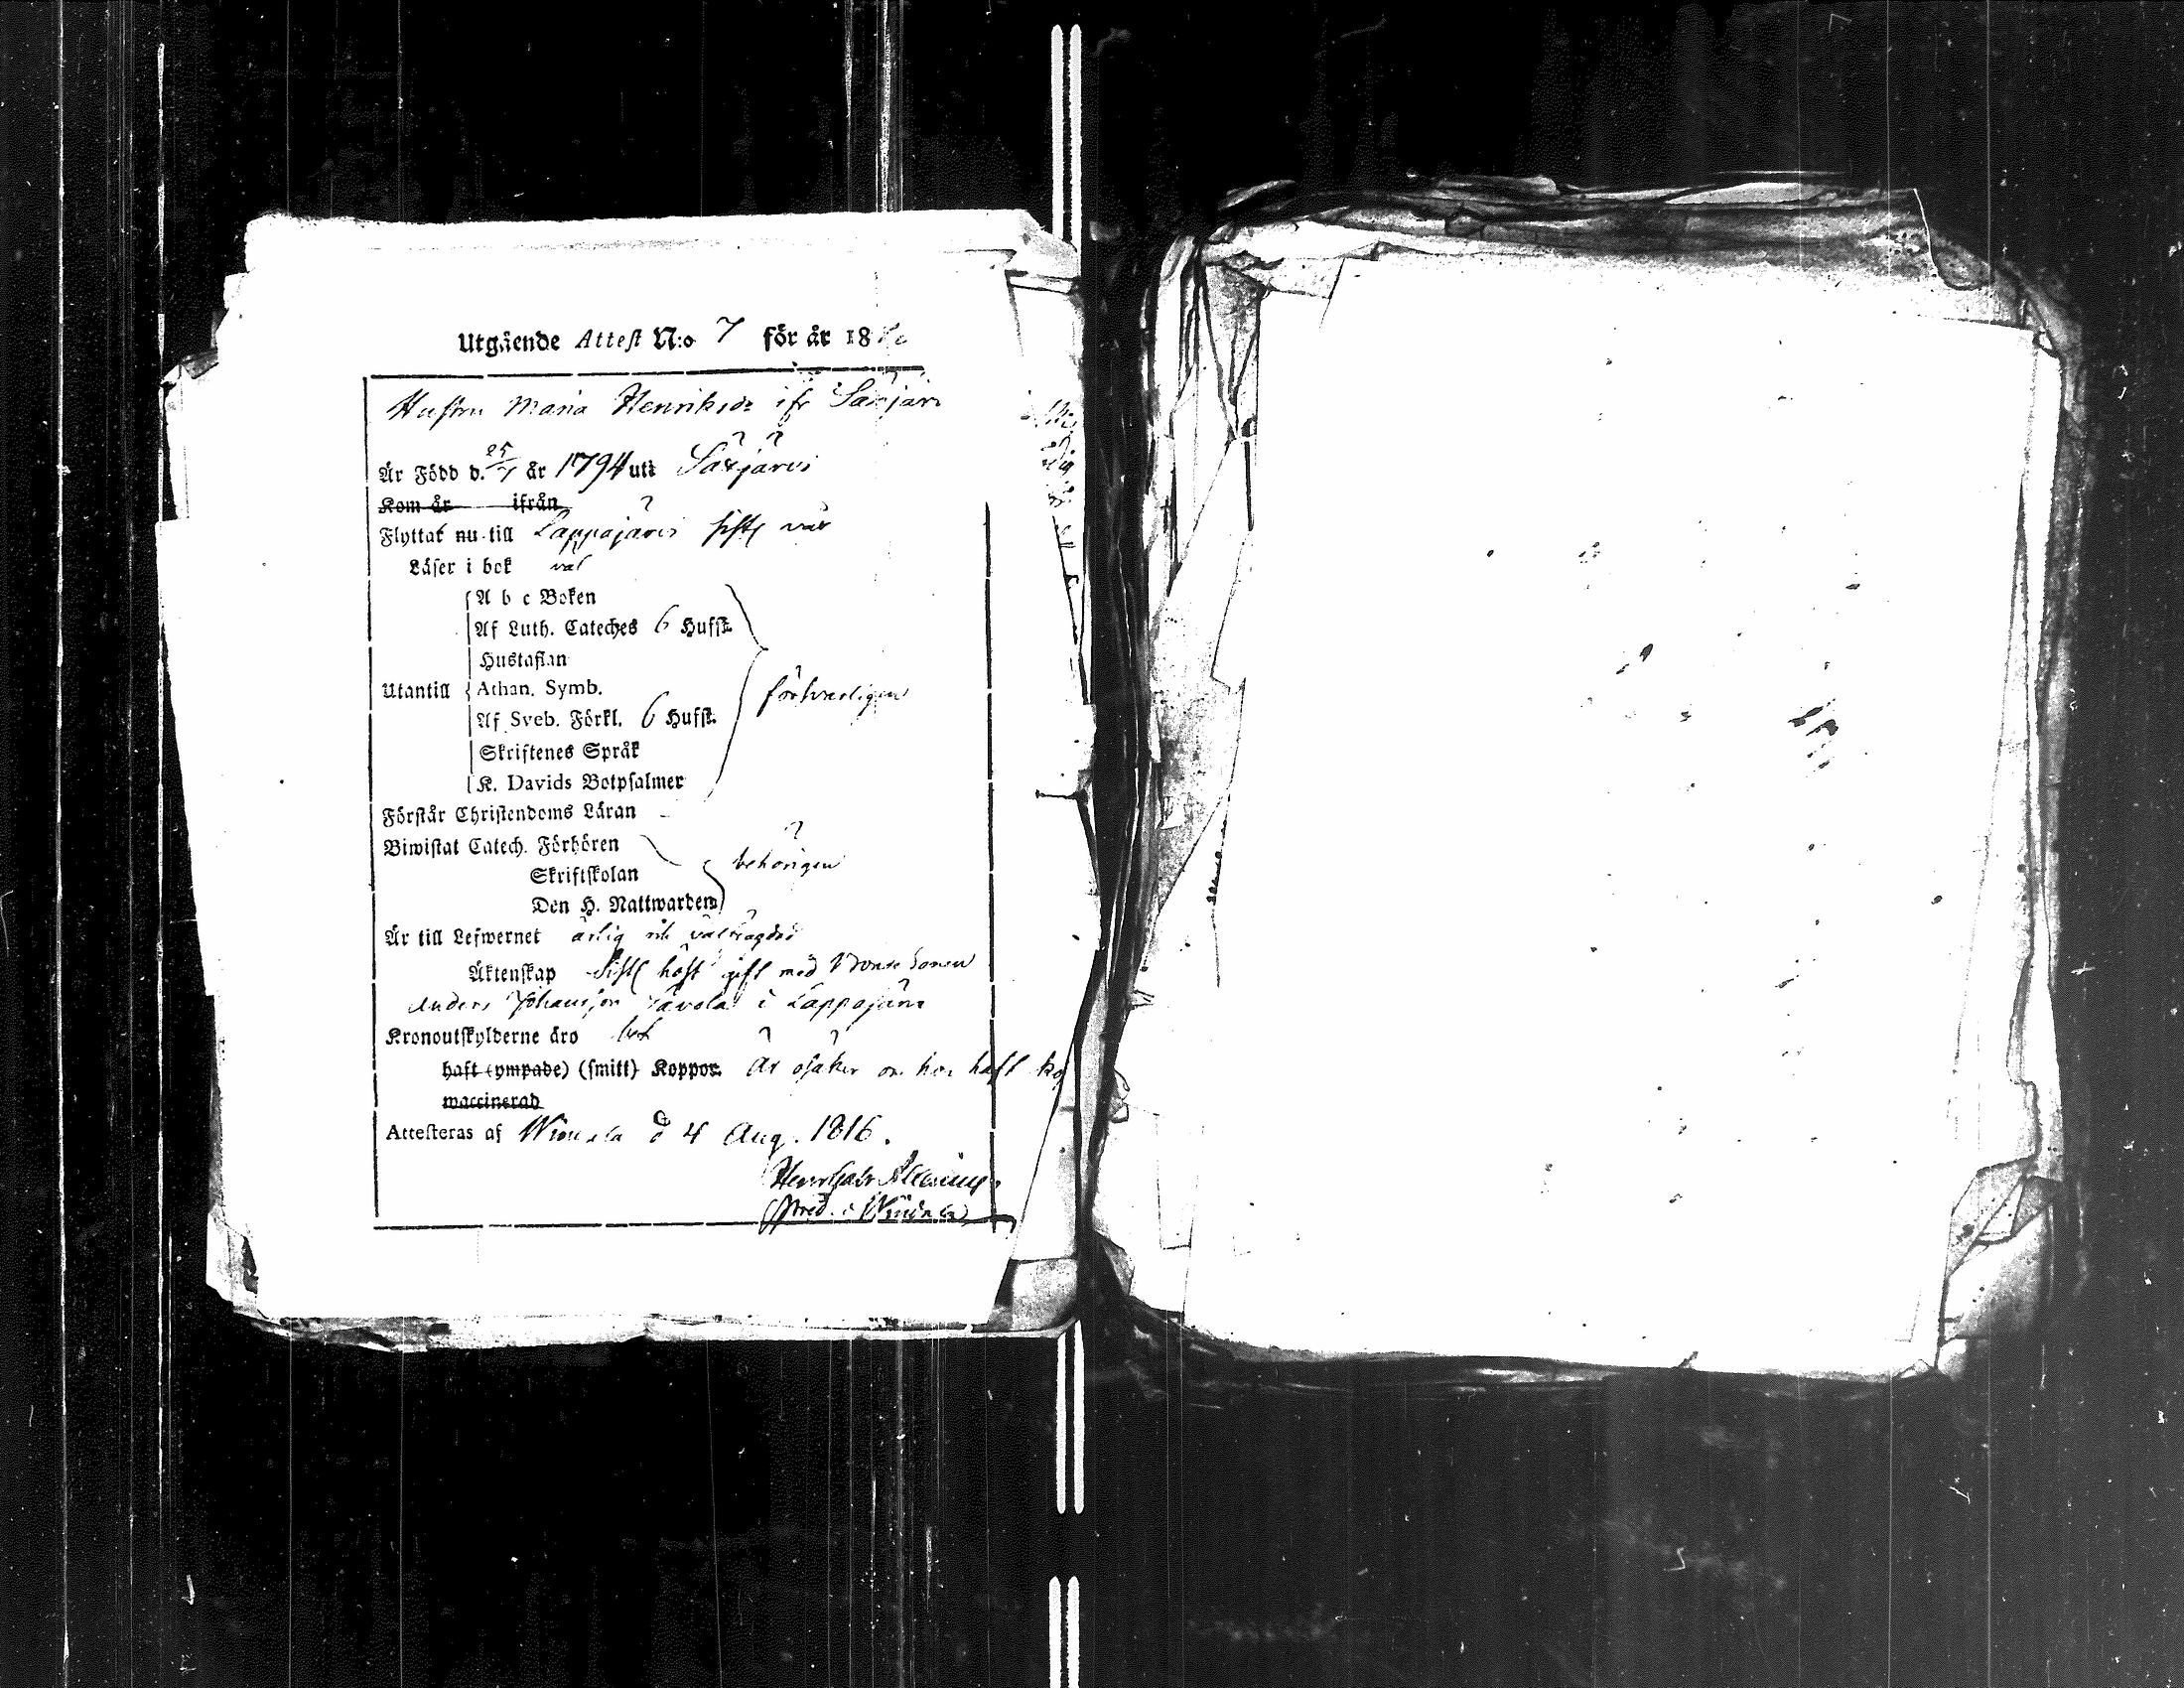 Utgående Attest N:o 7 för år 18
Hustru Maria Henriksdr ifr Säxjärvi
Är Född d. 25/7 år 1794 uti Säxjärvi
Kom år ifrån
Flyttat nu till Lappajärvi sistl vår
Läser i bok väl
A b c Boken
Af Luth. Cateches 6 Hufst.
Hustaflan
Utantill Athan. Symb. försvarligen
Af Sveb. Förkl. 6 Hufst.
Skriftenes Språk
K. Davids Botpsalmer
Förstår Christendoms Läran
Biwistat Catech. Förhören
Skriftskolan behörigen
Den H. Nattwarden
Är till Lefwernet ärlig och välfrägdad
Äktenskap Sistl höst gift med Bonde Sonen
Anders Johansson Savola i Lappajärvi
Kronoutskylderne äro bet
haft (ympade) (smitt) Koppor. Är osäker om hon haft kop
waccinerad
Attesteras af Windala d 4 Aug. 1816.
Pred. i Windala